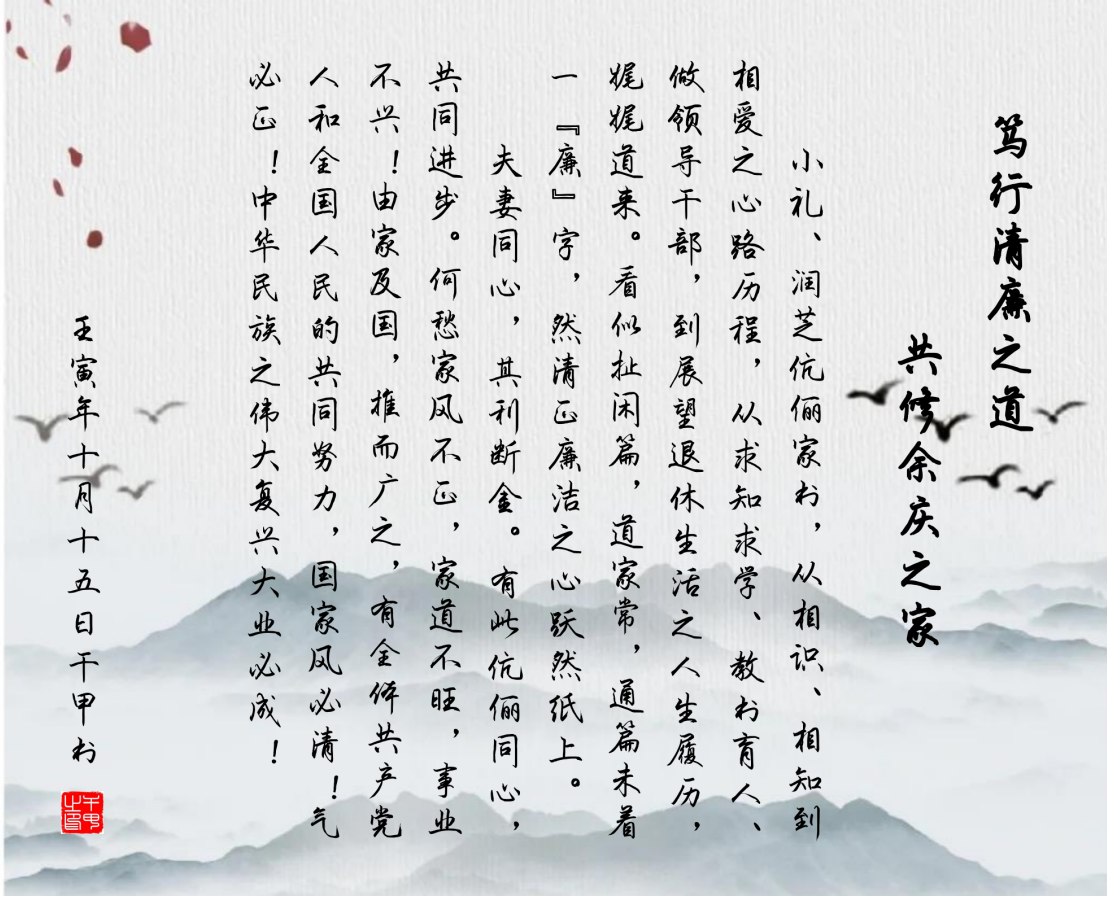 笃行清廉之道
共修余庆之家
小礼、润芝伉俪家书,从相识、相知到
相爱之心路历程,从求知求学、教书育人、
做领导干部,到展望退休生活之人生履历,
娓娓道来。看似扯闲篇,道家常,通篇未着
一『廉』字,然清正廉洁之心跃然纸上。
夫妻同心,其利断金。有此伉俪同心,
共同进步。何愁家风不正,家道不旺,事业
不兴!由家及国,推而广之,有全体共产党
人和全国人民的共同努力,国家风必清!气
必正!中华民族之伟大复兴大业必成!
壬寅年十月十五日干甲书
干甲之印